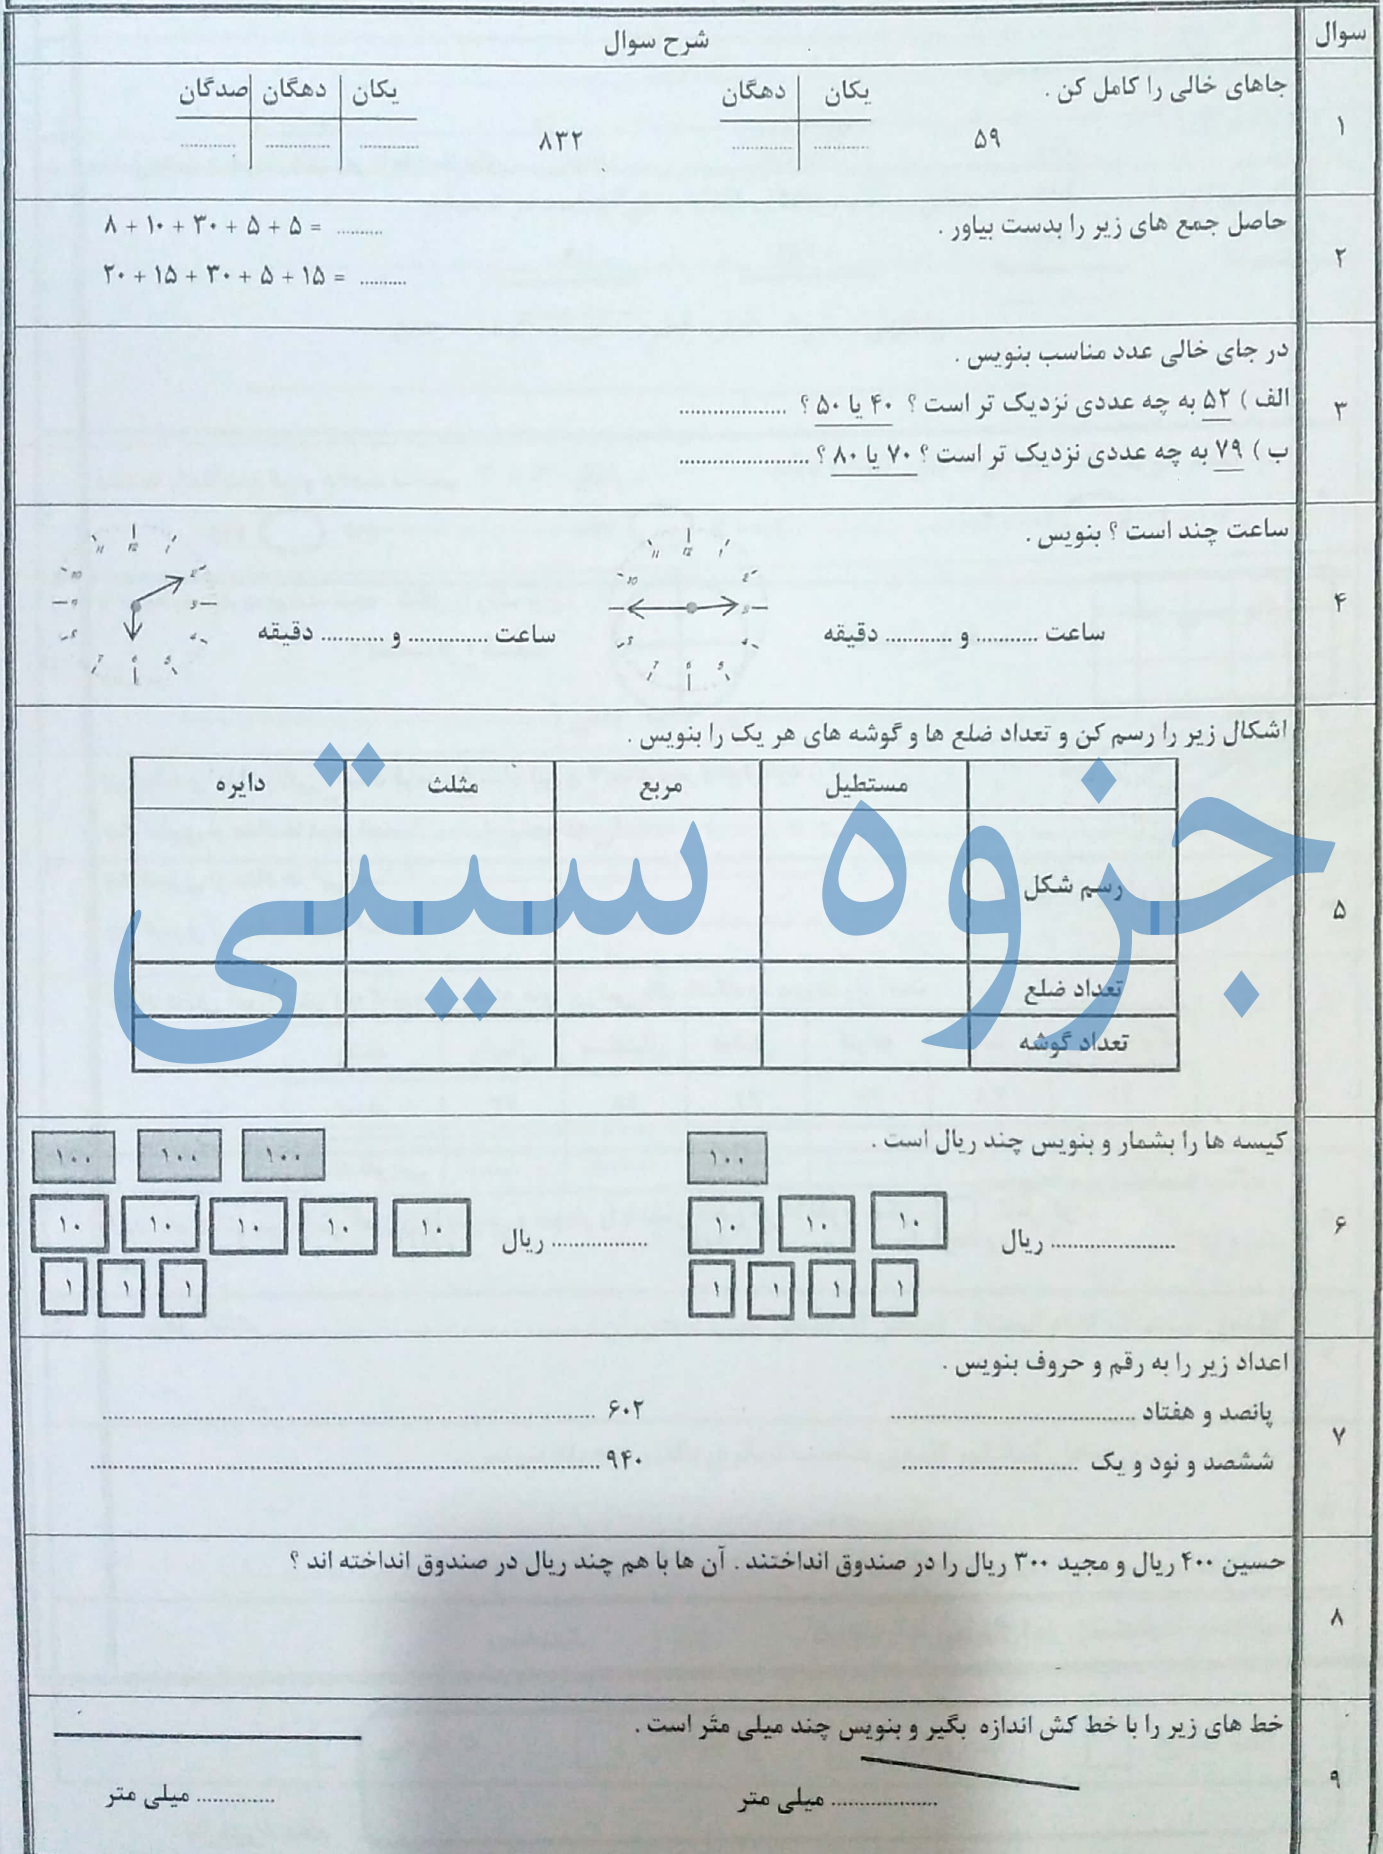 سوال
شرح سوال
۱
جاهای خالی را کامل کن .
۵۹
یکان دهگان
............ ............
۸۳۲
یکان دهگان صدگان
............ ............ ............
۲
حاصل جمع های زیر را بدست بیاور .
۸ + ۱۰ + ۳۰ + ۵ + ۵ = .........
۲۰ + ۱۵ + ۳۰ + ۵ + ۱۵ = .........
۳
در جای خالی عدد مناسب بنویس .
الف ) ۵۲ به چه عددی نزدیک تر است ؟ ۴۰ یا ۵۰ ؟ ...................
ب ) ۷۹ به چه عددی نزدیک تر است ؟ ۷۰ یا ۸۰ ؟ .......................
۴
ساعت چند است ؟ بنویس .
12 1 2 3 4 5 6 7 8 9 10 11
ساعت ........... و ............ دقیقه
12 1 2 3 4 5 6 7 8 9 10 11
ساعت .............. و ........... دقیقه
۵
اشکال زیر را رسم کن و تعداد ضلع ها و گوشه های هر یک را بنویس .
مستطیل مربع مثلث دایره
رسم شکل
تعداد ضلع
تعداد گوشه
جزوه سیتی
۶
کیسه ها را بشمار و بنویس چند ریال است .
۱۰۰
۱۰ ۱۰ ۱۰
...................... ریال
۱ ۱ ۱ ۱
۱۰۰ ۱۰۰ ۱۰۰
۱۰ ۱۰ ۱۰ ۱۰ ۱۰
................. ریال
۱ ۱ ۱
۷
اعداد زیر را به رقم و حروف بنویس .
پانصد و هفتاد ............................................
۶۰۲ ............................................................
ششصد و نود و یک ................................
۹۴۰ ............................................................
۸
حسین ۴۰۰ ریال و مجید ۳۰۰ ریال را در صندوق انداختند . آن ها با هم چند ریال در صندوق انداخته اند ؟
۹
خط های زیر را با خط کش اندازه بگیر و بنویس چند میلی متر است .
................... میلی متر
.............. میلی متر